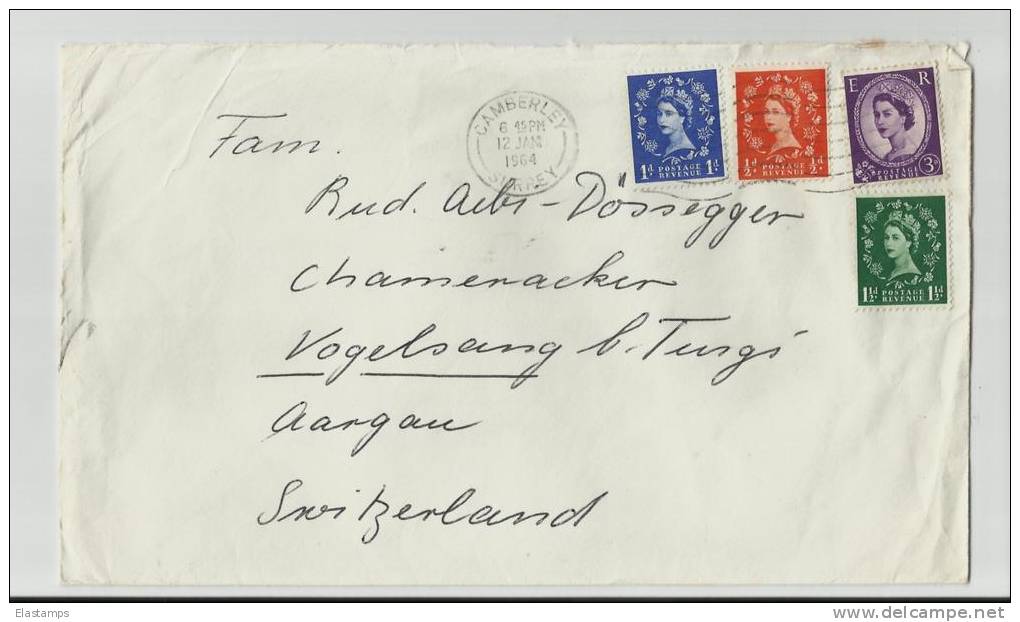 CAMBERLEY
6 45PM
12 JAN
1964
SURREY
1d POSTAGE REVENUE 1d
½d POSTAGE REVENUE ½d
E R
POSTAGE REVENUE 3D
1½d POSTAGE REVENUE 1½d
Fam.
Rud. Aebi-Dössegger
Chameracker
Vogelsang b. Turgi
Aargau
Switzerland
Elastamps
www.delcampe.net